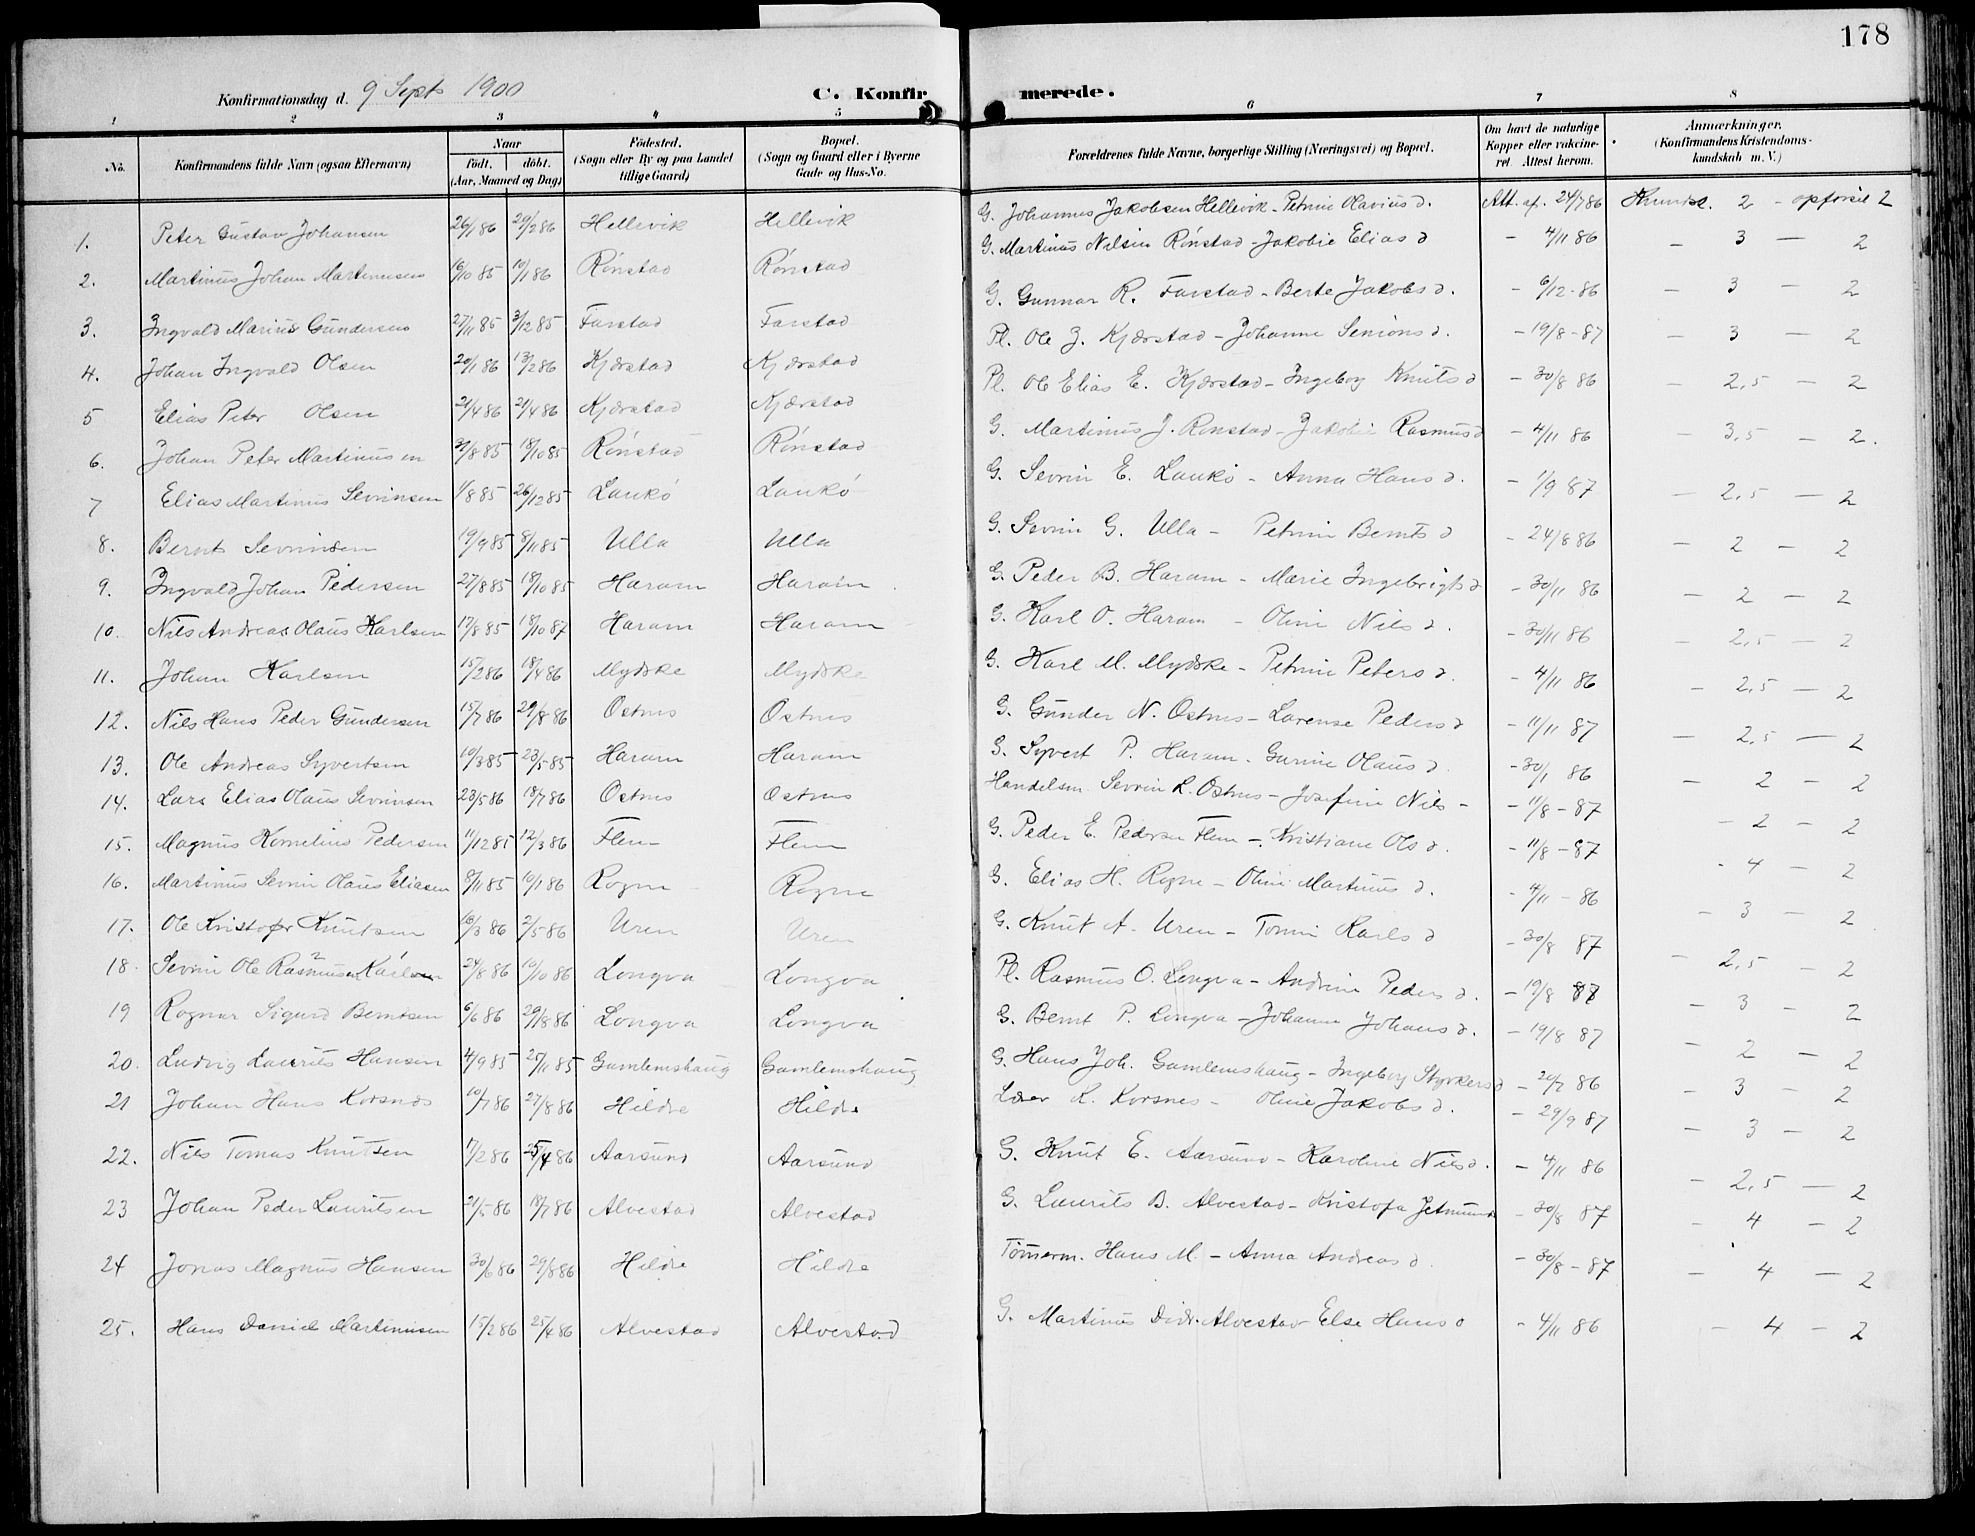 178
Konfirmationsdag d. 9 Sept 1900 C. Konfirmerede.
1 2 3 4 5 6 7 8
No. Konfirmandens fulde Navn (ogsaa Efternavn) Naar født. døbt. (Aar, Maaned og Dag) Fødested. (Sogn eller By og paa Landet tillige Gaard) Bopæl. (Sogn og Gaard eller i Byerne Gade og Hus-No. Forældrenes fulde Navne, borgerlige Stilling (Næringsvei) og Bopæl. Om havt de naturlige Kopper eller vakcineret. Attest herom. Anmærkninger. (Konfirmandens Kristendomskundskab m. V.)
1. Peter Gustav Johansen 26/1 86 29/2 86 Hellevik Hellevik G. Johannes Jakobsen Hellevik - Petrine Olavius d. Att. af. 24/7 86 Kundsk. 2 - opførsel 2
2. Martinus Johan Martinusen 16/10 85 10/1 86 Rönstad Rönstad G. Martinus Nilsen Rönstad - Jakobie Elias d - 4/11 86 - 3 - 2
3. Ingvald Marius Gundersen 27/11 85 3/12 85 Farstad Farstad G. Gunnar R. Farstad - Berte Jakobs d. - 6/12 - 86 - 3 - 2
4. Johan Ingvald Olsen 20/1 86 13/2 86 Kjærstad Kjærstad Pl. Ole J. Kjærstad - Johanne Simons d. - 19/8 - 87 - 3 - 2
5 Elias Peter Olsen 21/4 86 21/4 86 Kjærstad Kjærstad Pl. Ole Elias E. Kjærstad - Ingeborg Knuts d - 30/8 86 - 2,5 - 2
6. Johan Peter Martinusen 30/8 85 18/10 85 Rönstad Rönstad G. Martinus J. Rönstad - Jakobie Rasmus d - 4/11 86 - 3,5 - 2.
7 Elias Martinus Sevrinsen 1/8 85 26/12 85 Laukö Laukö G. Sevrin E. Laukö - Anna Hans d. - 1/9 87 - 2,5 - 2
8. Bernt Sevrinsen 19/9 85 8/11 85 Ulla Ulla G. Sevrin G. Ulla - Petrine Bernts d - 24/8 86 - 2 - 2
9. Ingvald Johan Pedersen 27/8 85 18/10 85 Haram Haram G. Peder B. Haram - Marie Ingebrigts d - 30/11 86 - 2 - 2
10. Nils Andreas Olaus Karlsen 17/8 85 18/10 87 Haram Haram G. Karl O. Haram - Oline Nils d. - 30/11 86 - 2,5 - 2
11. Johan Karlsen 15/2 86 18/4 86 Mydske Mydske G. Karl M. Mydske - Petrine Peters d. - 4/11 86 - 2,5 - 2
12. Nils Hans Peder Gundersen 15/7 86 29/8 86 Ostnes Ostnes G. Gunder N. Ostnes - Lorense Peders d - 11/11 87 - 2,5 - 2
13. Ole Andreas Syvertsen 10/3 85 23/5 85 Haram Haram G. Syvert P. Haram - Gurine Olaus d. - 30/1 86 - 2 - 2
14. Lars Elias Olaus Sevrinsen 23/5 86 18/7 86 Ostnes Ostnes Handelsm. Sevrin L. Ostnes - Josefine Nils - - 11/8 - 87 - 2 - 2
15. Magnus Kornelius Pedersen 11/12 85 12/3 86 Flem Flem G. Peder E. Pedersen Flem - Kristiane Ols d. - 11/8 - 87 - 4 - 2
16. Martinus Sevrin Olaus Eliasen 8/11 85 10/1 86 Rogne Rogne G. Elias H. Rogne - Oline Martinus d. - 4/11 - 86 - 3 - 2
17. Ole Kristofer Knutsen 16/3 86 2/5 86 Uren Uren G. Knut A. Uren - Tomine Karls d - 30/8 87 - 2,5 - 2
18. Sevrin Ole Rasmusen Karlsen 24/8 86 10/10 86 Longva Longva Pl. Rasmus O. Longva - Andrine Peders d. - 19/8 87 - 3 - 2
19 Ragnar Sigurd Berntsen 6/6 86 29/8 86 Longva Longva G. Bernt P. Longva - Johanne Johans d. - 19/8 87 - 2 - 2
20. Ludvig Laurits Hansen 4/9 85 25/11 85 Gamlemshaug Gamlemshaug G. Hans Joh. Gamlemshaug - Ingeborg Styrkers d - 20/7 86 - 3 - 2
21 Johan Hans Korsnes 10/7 86 27/8 86 Hildre Hildre Lærer K. Korsnes - Oline Jakobs d. - 29/9 87 - 3 - 2
22. Nils Tomas Knutsen 7/2 86 25/4 86 Aarsund Aarsund G. Knut E. Aarsund - Karoline Nils d. - 4/11 86 - 2,5 - 2
23 Johan Peder Lauritsen 21/5 86 18/7 86 Alvestad Alvestad G. Laurits B. Alvestad - Kristofa Jetmunds - 30/8 87 - 4 - 2
24 Jonas Magnus Hansen 30/6 86 29/8 86 Hildre Hildre Tømerm. Hans M. - Anna Andreas d. - 30/8 - 87 - 4 - 2
25. Hans Daniel Martinusen 15/2 86 25/4 86 Alvestad Alvestad G. Martinus Didr. Alvestad Else Hans d - 4/11 86 - 4 - 2